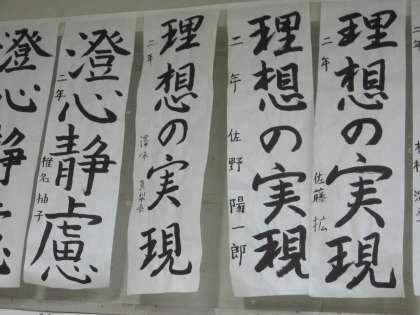 理想の実現
二年 佐藤 拡
理想の実現
二年 佐野 陽一郎
理想の実現
二年
澄心静慮
二年 椎名 柚子
澄心静慮